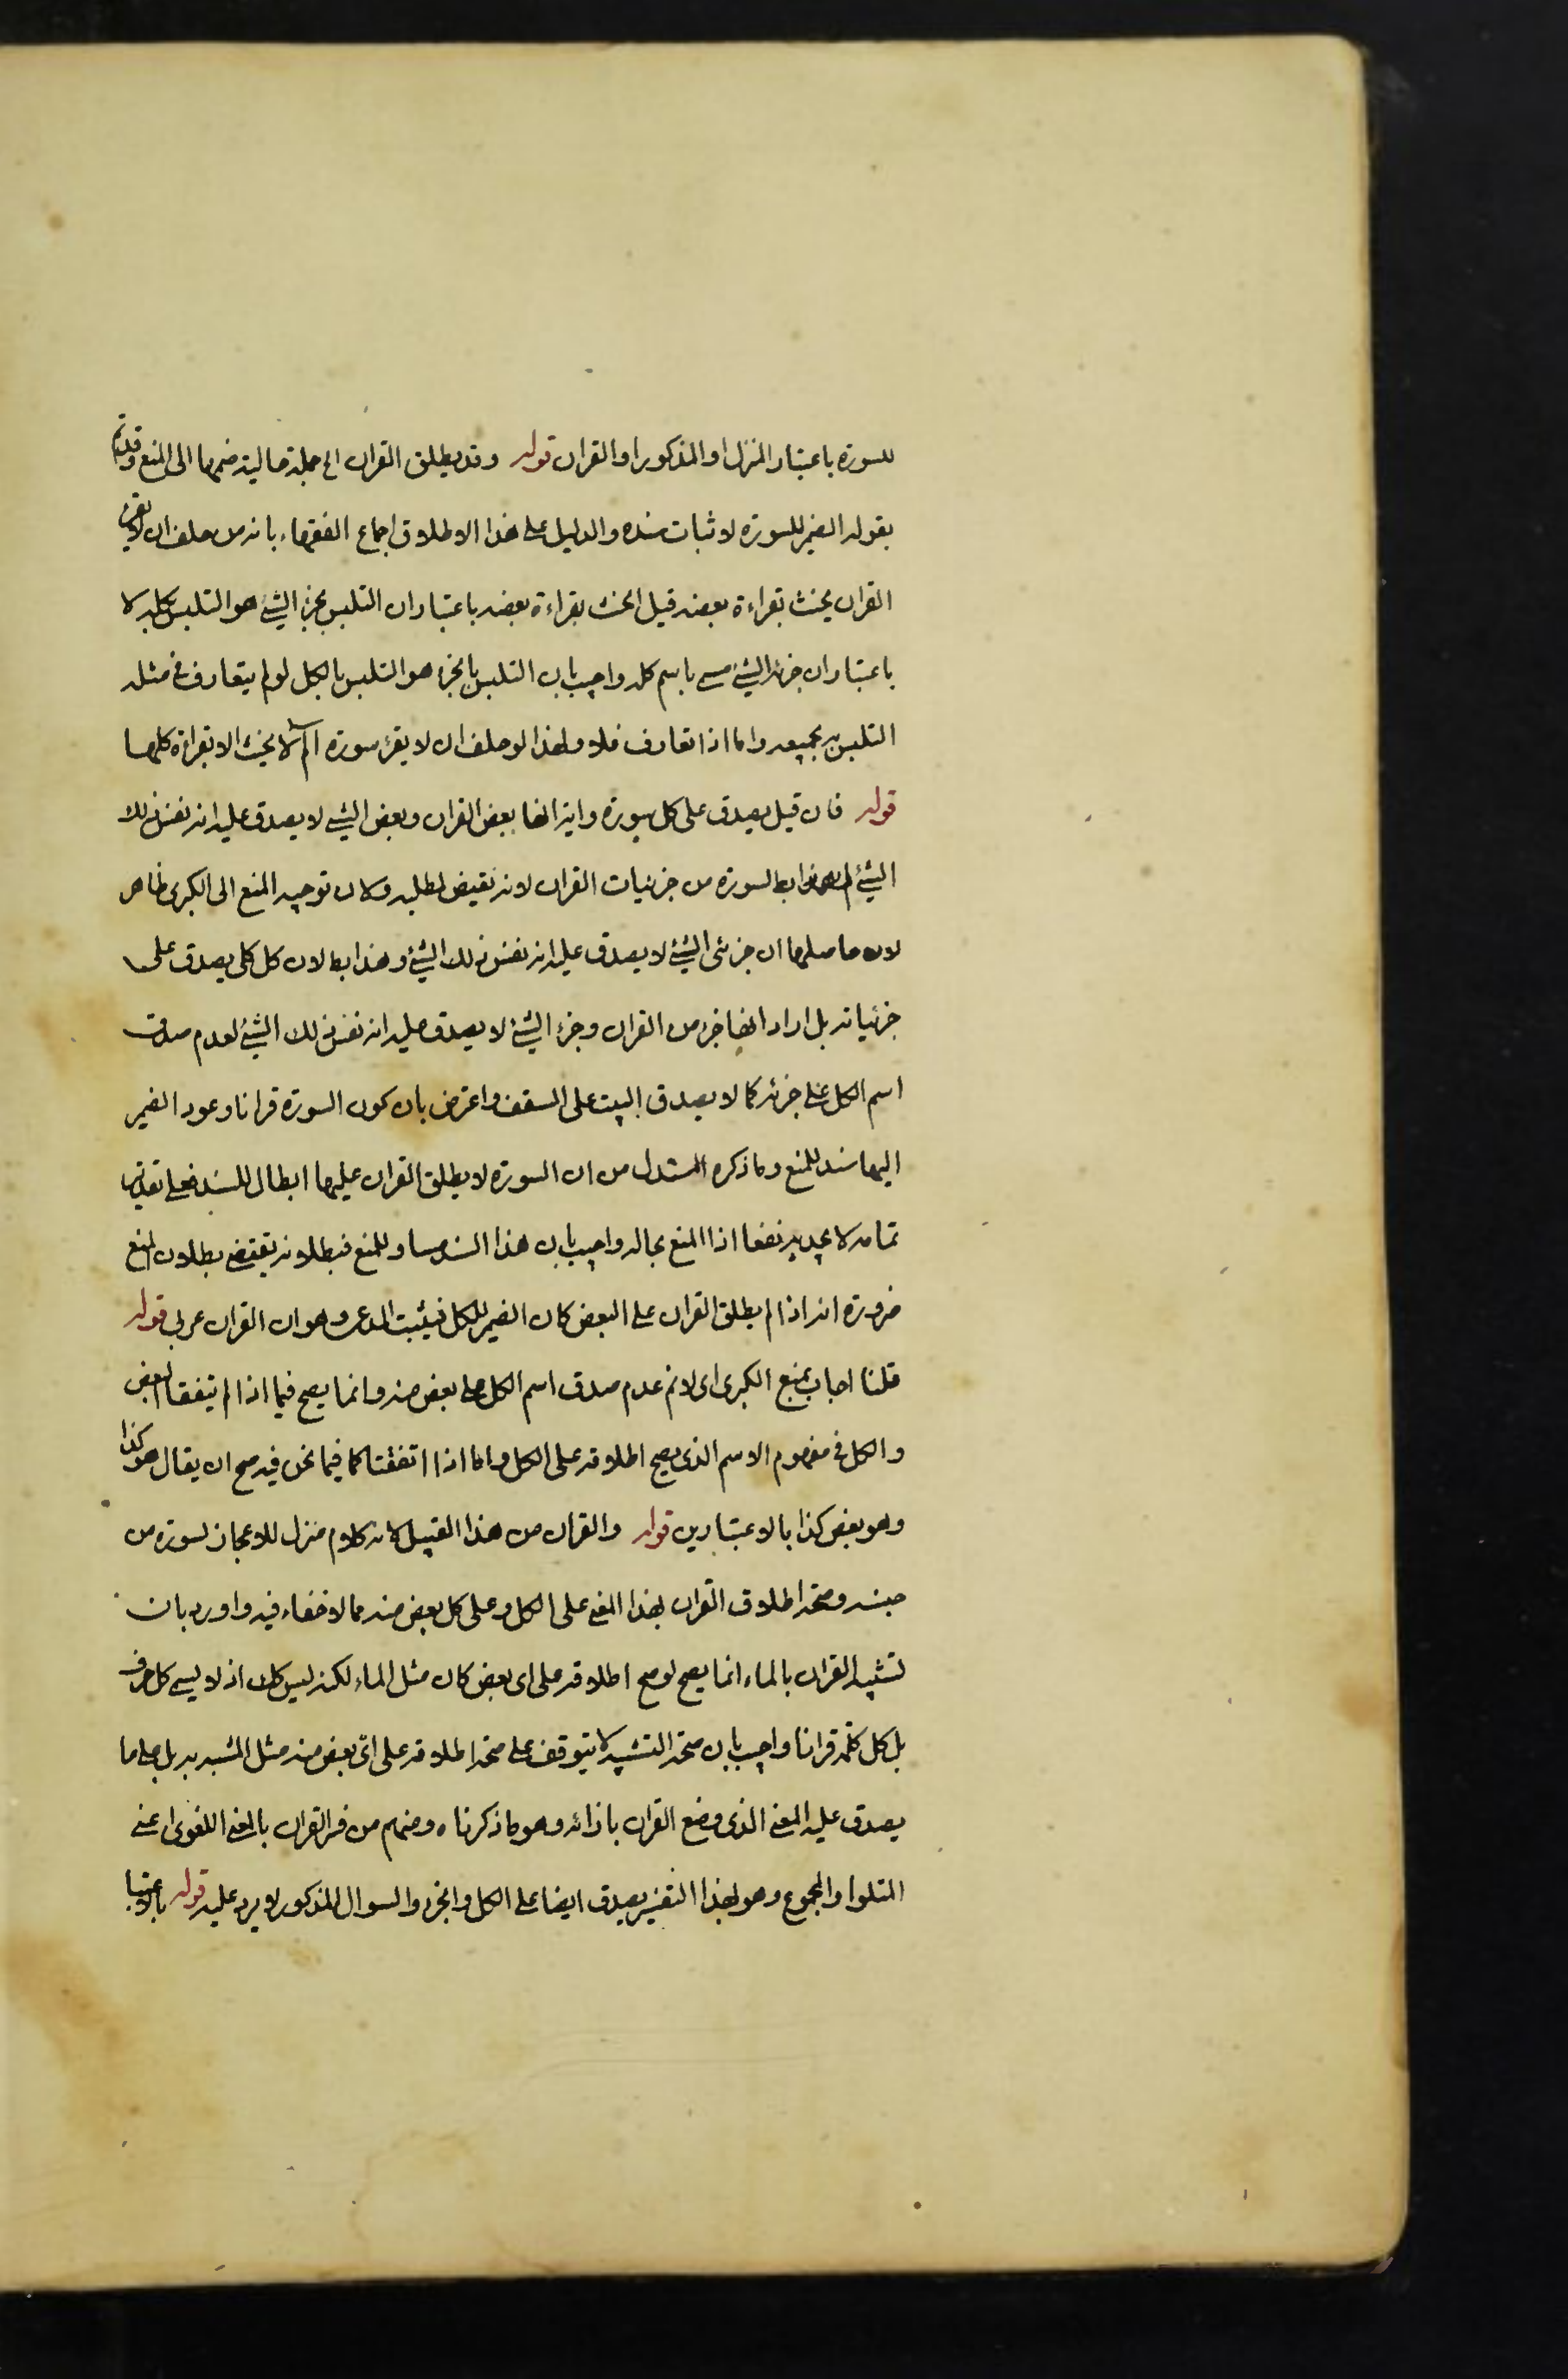 للسورة باعتبار المنزل او المذكور او القران قوله وقد يطلق القران الخ جملة حالية ضمها الى المنع وقد تم
بقوله الضمير للسورة لاثبات سنده والدليل على هذا الاطلاق اجماع الفقهاء بانه من حلف ان لا يقرء
القران يحنث بقراءة بعضه قيل الحنث بقراءة بعضه باعتبار ان التلبس بجزء الشئ هو التلبس بكله لا
باعتبار ان جزء الشئ مسمى باسم كله واجيب بان التلبس بالجزء هو التلبس بالكل لو لم يتعارف في مثله
التلبس بجميعه واما اذا تعارف فلا ولهذا لو حلف ان لا يقرء سورة الم لا يحنث الا بقراءة كلها
قوله فان قيل يصدق على كل سورة واية انها بعض القران وبعض الشئ لا يصدق عليه انه نفس ذلك
الشئ السورة من جزئيات القران لانه نقيض لمطلبه وكان توجيه المنع الى الكبرى ظاهر
لان حاصلها ان جزئى الشئ لا يصدق عليه انه نفس ذلك الشئ وهذا بط لان كل كلى يصدق على
جزئياته بل اراد انها جزء من القران وجزء الشئ لا يصدق عليه انه نفس ذلك الشئ لعدم صدق
اسم الكل على جزئه كما لا يصدق البيت على السقف واعترض بان كون السورة قرانا وعود الضمير
اليها سند للمنع وما ذكره المستدل من ان السورة لا يطلق القران عليها ابطال للسند فعلى تقدير
تمامه لا يجديه نفعا اذا المنع بحاله واجيب بان هذا السند مساو للمنع فبطلانه يقتضى بطلان المنع
ضرورة انه اذا لم يطلق القران على البعض كان الضمير للكل فيثبت المدعى وهو ان القران عربى قوله
قلنا اجاب بمنع الكبرى اى لا نم عدم صدق اسم الكل على بعض منه وانما يصح فيما اذا لم يتفقا البعض
والكل فى مفهوم الاسم الذى يصح اطلاقه على الكل واما اذا اتفقتا كما فيما نحن فيه صح ان يقال هو كذا
وهو بعض كذا بالاعتبارين قوله والقران من هذا القبيل كانه كلام منزل للاعجاز لسورة من
جنسه وصحة اطلاق القران بهذا المعنى على الكل وعلى كل بعض منه مما لا خفاء فيه واورد بان
تشبيه القران بالماء انما يصح لو صح اطلاقه على اى بعض كان مثل الماء لكنه ليس كك اذ لا يسمى كل حرف
بل كل كلمة قرانا واجيب بان صحة التشبيه لا يتوقف على صحة اطلاقه على اى بعض منه مثل المشبه به بل على ما
يصدق عليه المعنى الذى وضع القران بازائه وهو ما ذكرناه ومنهم من فسر القران بالمعنى اللغوى اعنى
المتلو او المجموع وهو بهذا التفسير يصدق ايضا على الكل والجزء والسوال المذكور لا يرد عليه قوله بالاعتبا